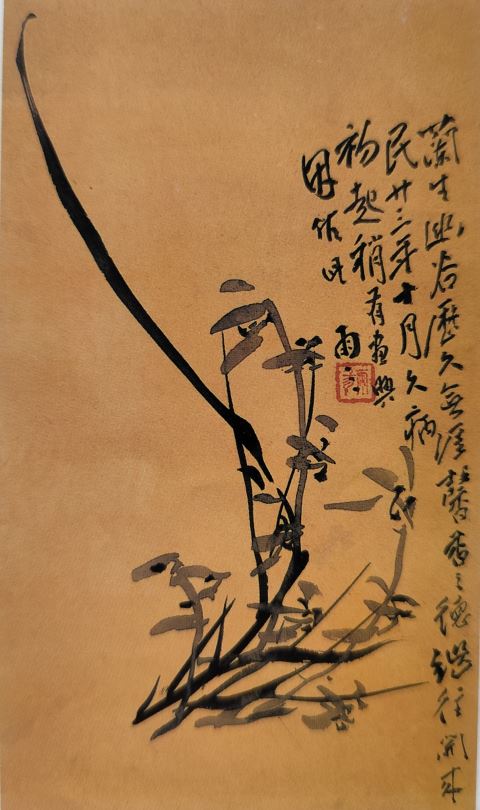 蘭生幽谷歷久無淫馨香之德繼往開來
民廿三年十月久病
初起稍有畫興
因作此
雨